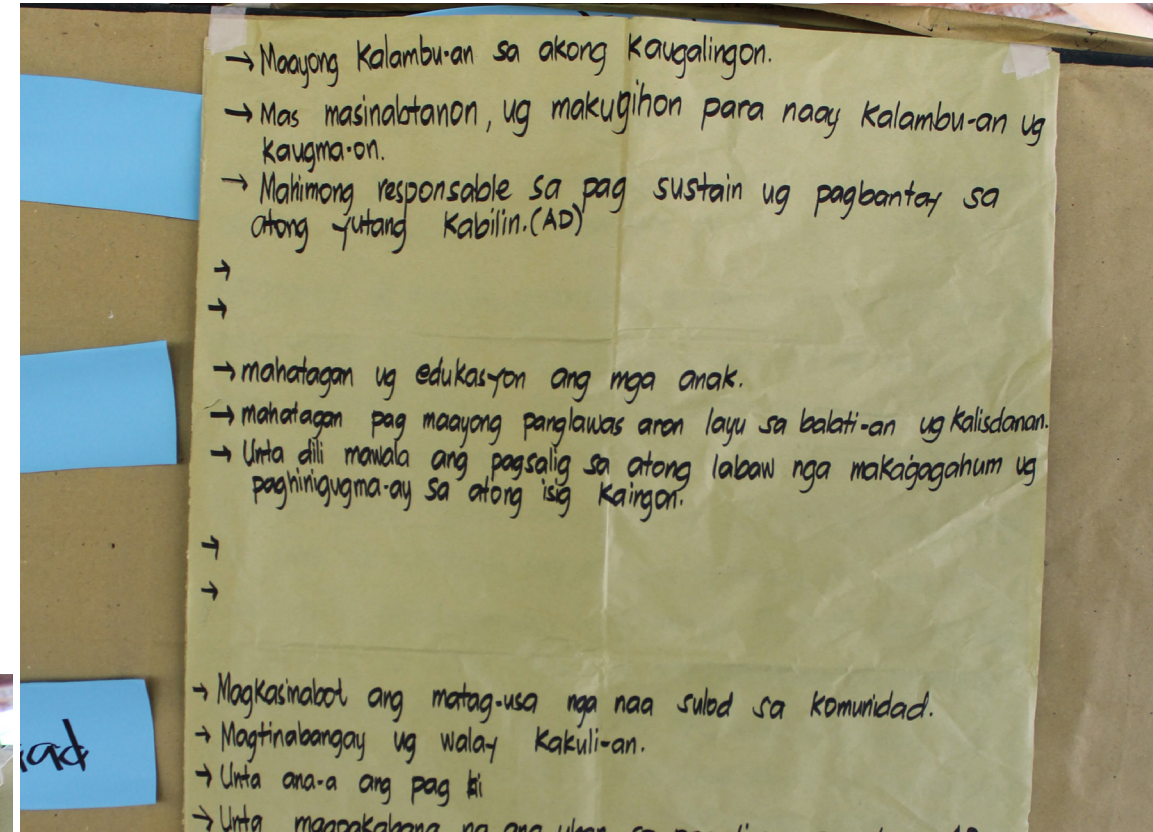 → Maayong Kalambu-an sa akong Kaugalingon.
→ Mas masinabtanon, ug makugihon para naay Kalambu-an ug
kaugma-on.
→ Mahimong responsable sa pag sustain ug pagbantay sa
atong yutang Kabilin. (AD)
→
→
→ mahatagan ug edukasyon ang mga anak.
→ mahatagan pag maayong panglawas aron layu sa balati-an ug Kalisdanan.
→ Unta dili mawala ang pagsalig sa atong labaw nga makagagahum ug
paghinigugma-ay sa atong isig Kaingon.
→
→
→ Magkasinabot ang matag-usa nga naa sulod sa komunidad.
ad
→ Magtinabangay ug walay Kakuli-an.
→ Unta ana-a ang pag
→ Unta